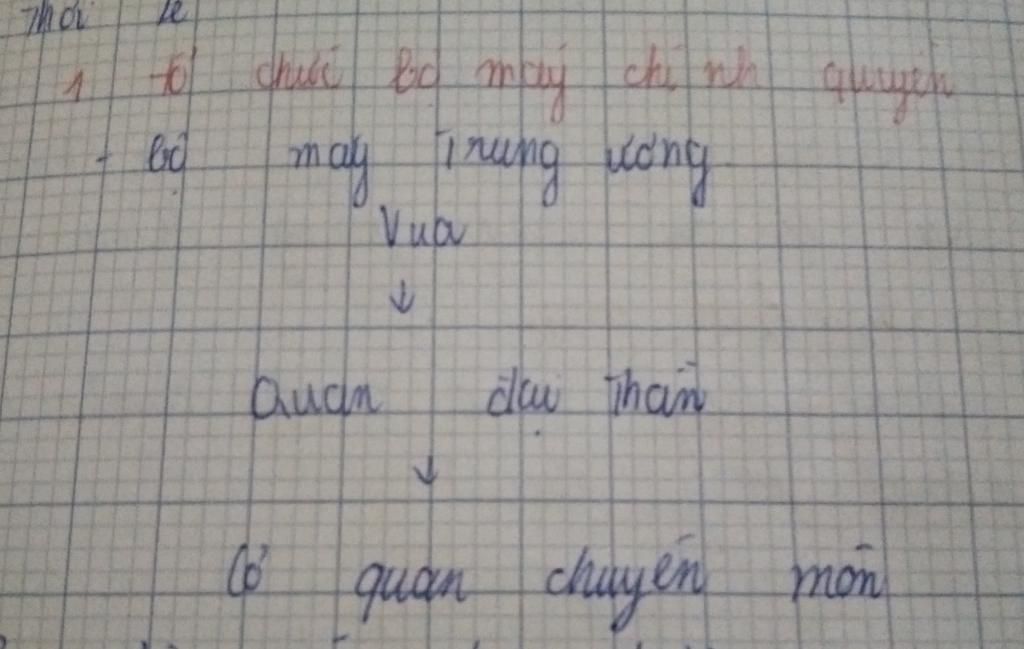 Thời Lê
1 tổ chức bộ máy chính quyền
+ Bộ máy Trung ương
Vua
↓
Quan đại Thần
↓
Cơ quan chuyên môn